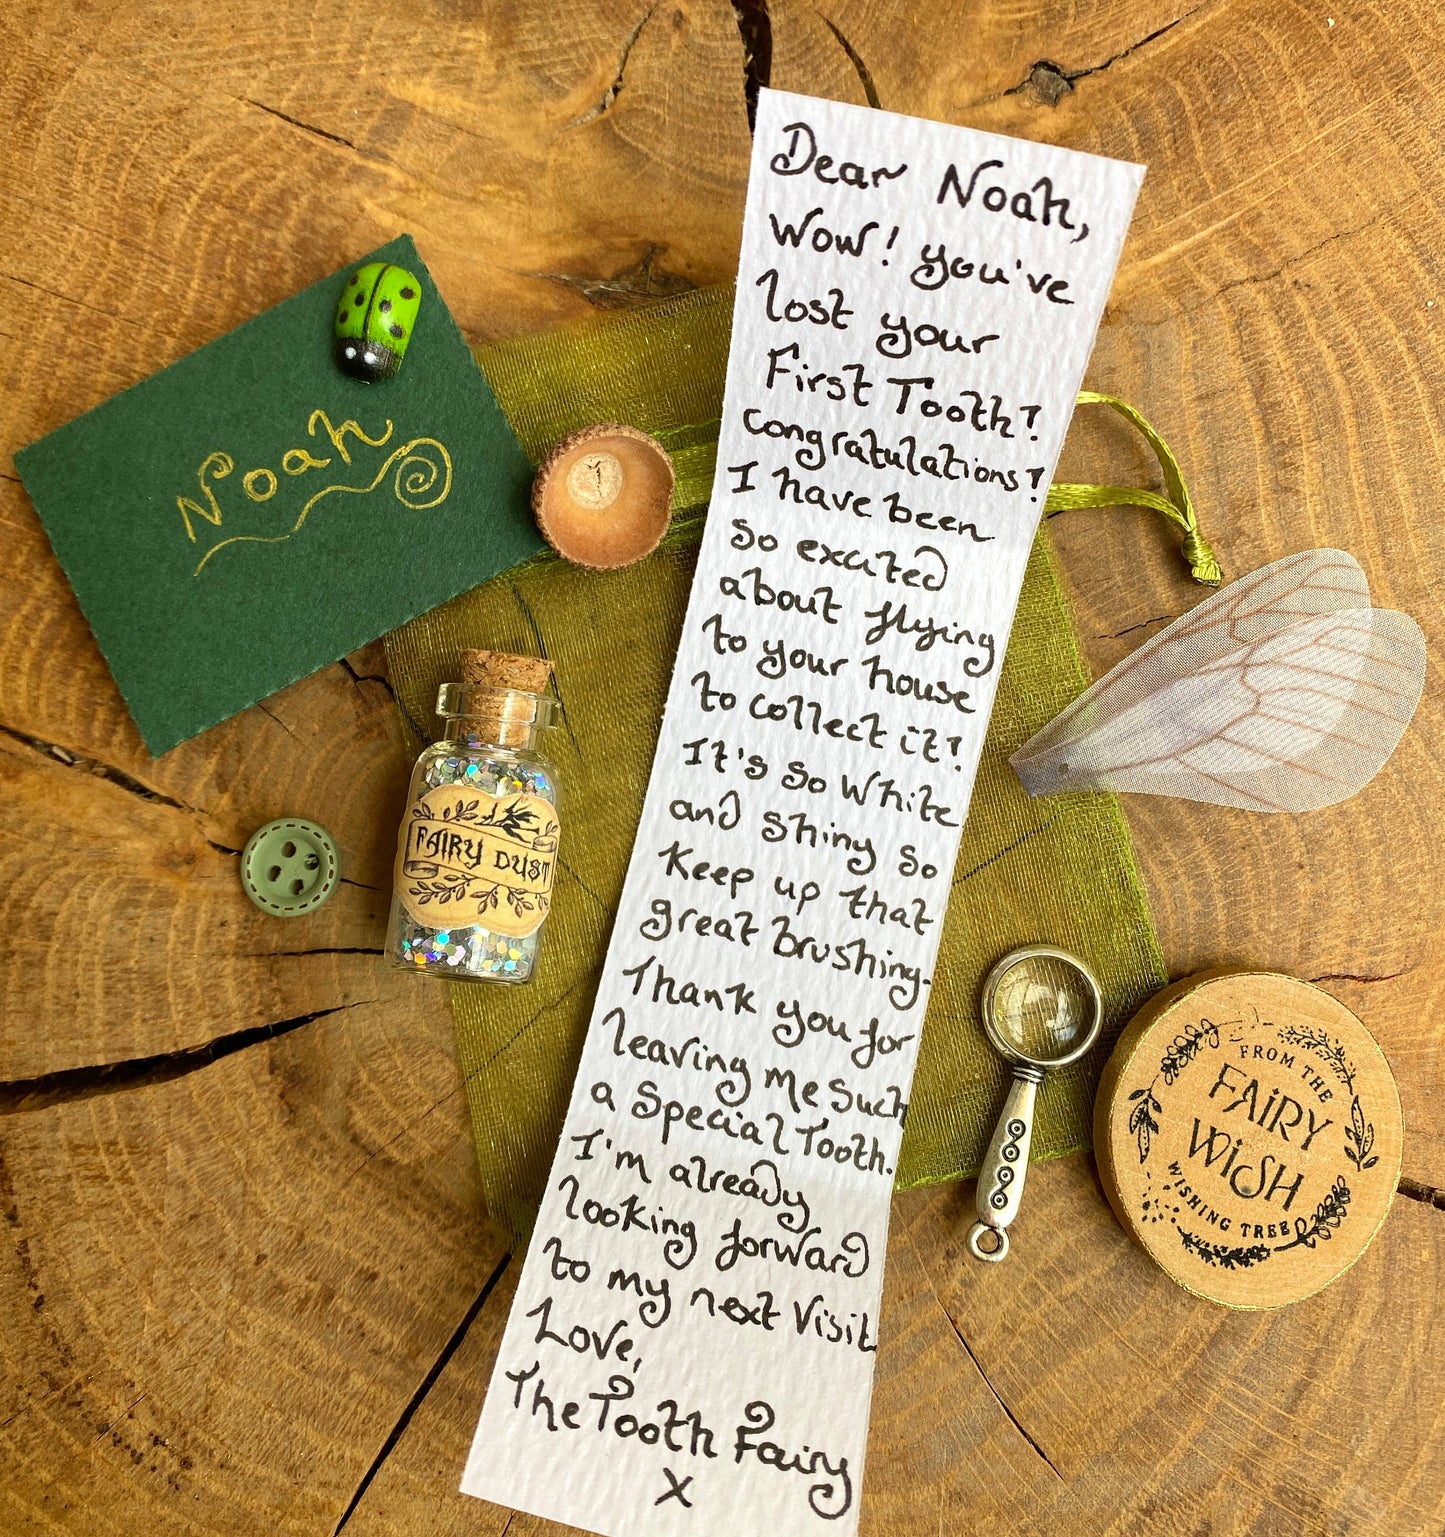 Dear Noah,
Wow! you've
lost your
First Tooth!
Congratulations!
I have been
so excited
about flying
to your house
to collect it!
It's so white
and shiny so
keep up that
great brushing.
Thank you for
leaving me such
a special Tooth.
I'm already
looking forward
to my next visit
Love,
The Tooth Fairy
X
Noah
FAIRY DUST
FROM THE
FAIRY
WISH
WISHING TREE